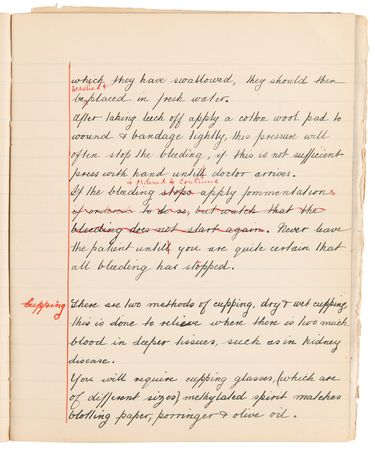 which they have swallowed, they should then
washed &
be placed in fresh water.
After taking leech off apply a cotton wool pad to
wound & bandage tightly, this pressure will
often stop the bleeding, if this is not sufficient
press with hand until doctor arrives.
is ordered to continue
If the bleeding stops apply fommentations
if ordered to do so, but watch that the
bleeding does not start again. Never leave
the patient until you are quite certain that
all bleeding has stopped.
Cupping There are two methods of cupping, dry & wet cupping,
this is done to relieve where there is too much
blood in deeper tissues, such as in kidney
disease.
You will require cupping glasses, (which are
of different sizes) methylated spirit matches
blotting paper, porringer & olive oil.